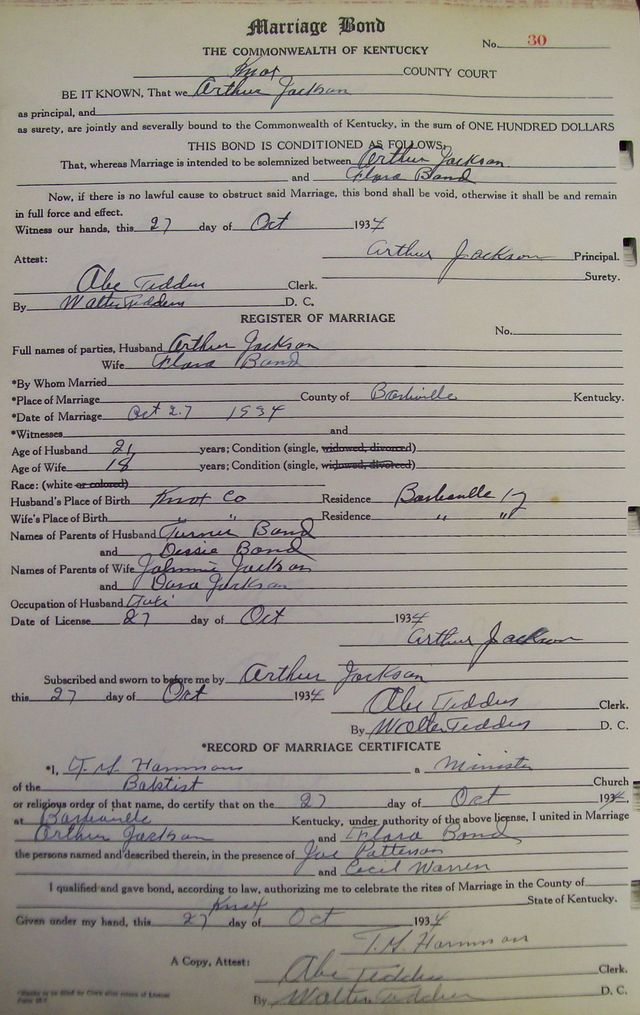 Marriage Bond
No. 30
THE COMMONWEALTH OF KENTUCKY
Knox COUNTY COURT
BE IT KNOWN, That we Arthur Jackson
as principal, and
as surety, are jointly and severally bound to the Commonwealth of Kentucky, in the sum of ONE HUNDRED DOLLARS
THIS BOND IS CONDITIONED AS FOLLOWS:
That, whereas Marriage is intended to be solemnized between Arthur Jackson
and Flora Band
Now, if there is no lawful cause to obstruct said Marriage, this bond shall be void, otherwise it shall be and remain
in full force and effect.
Witness our hands, this 27 day of Oct 1934
Arthur Jackson Principal.
Attest: Surety.
Abe Teddus Clerk.
By Walter Teddus D. C.
REGISTER OF MARRIAGE
No.
Full names of parties, Husband Arthur Jackson
Wife Flora Band
*By Whom Married
*Place of Marriage County of Kentucky.
*Date of Marriage Oct 27 1934
*Witnesses and
Age of Husband 21 years; Condition (single, widowed, divorced)
Age of Wife 18 years; Condition (single, widowed, divorced)
Race: (white or colored)
Husband's Place of Birth Knox Co Residence Barbeville Ky
Wife's Place of Birth " " Residence " "
Names of Parents of Husband Turner Band
and Dessie Band
Names of Parents of Wife Johnnie Jackson
and Dora Jackson
Occupation of Husband
Date of License 27 day of Oct 1934
Arthur Jackson
Subscribed and sworn to before me by Arthur Jackson
this 27 day of Oct 1934 Abe Teddus Clerk.
By Walter Teddus D. C.
*RECORD OF MARRIAGE CERTIFICATE
*I, T. S. Hammons a Minister
of the Babtist Church
or religious order of that name, do certify that on the 27 day of Oct 1934,
at Kentucky, under authority of the above license, I united in Marriage
Arthur Jackson and Flora Band
the persons named and described therein, in the presence of Joe Patterson
and Cecil Warren
I qualified and gave bond, according to law, authorizing me to celebrate the rites of Marriage in the County of
Knox State of Kentucky.
Given under my hand, this 27 day of Oct 1934
T. S. Hammons
A Copy, Attest: Abe Teddus Clerk.
By Walter Teddus D. C.